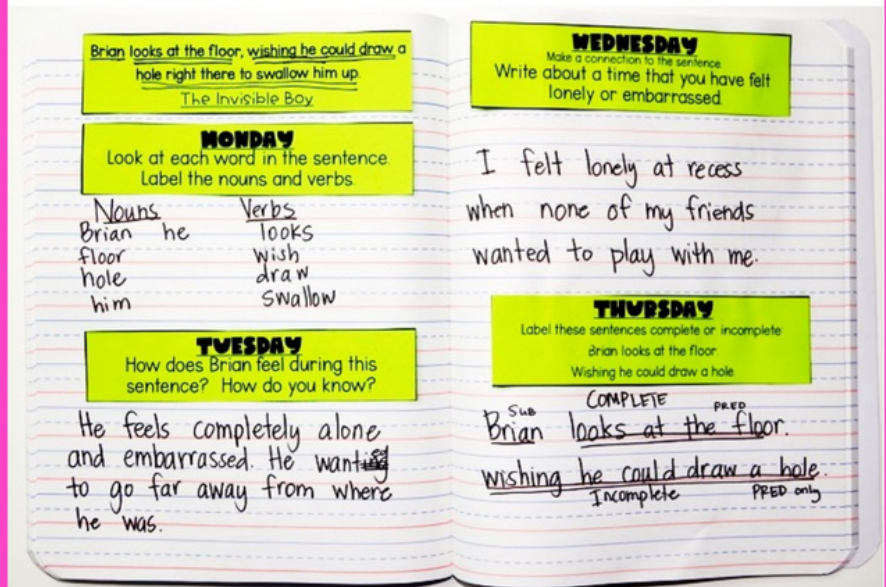 Brian looks at the floor, wishing he could draw a
hole right there to swallow him up.
The Invisible Boy
MONDAY
Look at each word in the sentence.
Label the nouns and verbs.
Nouns Verbs
Brian he looks
floor wish
hole draw
him swallow
TUESDAY
How does Brian feel during this
sentence? How do you know?
He feels completely alone
and embarrassed. He wants
to go far away from where
he was.
WEDNESDAY
Make a connection to the sentence
Write about a time that you have felt
lonely or embarrassed.
I felt lonely at recess
when none of my friends
wanted to play with me.
THURSDAY
Label these sentences complete or incomplete
Brian looks at the floor.
Wishing he could draw a hole.
COMPLETE
SUB PRED
Brian looks at the floor.
wishing he could draw a hole.
Incomplete PRED only